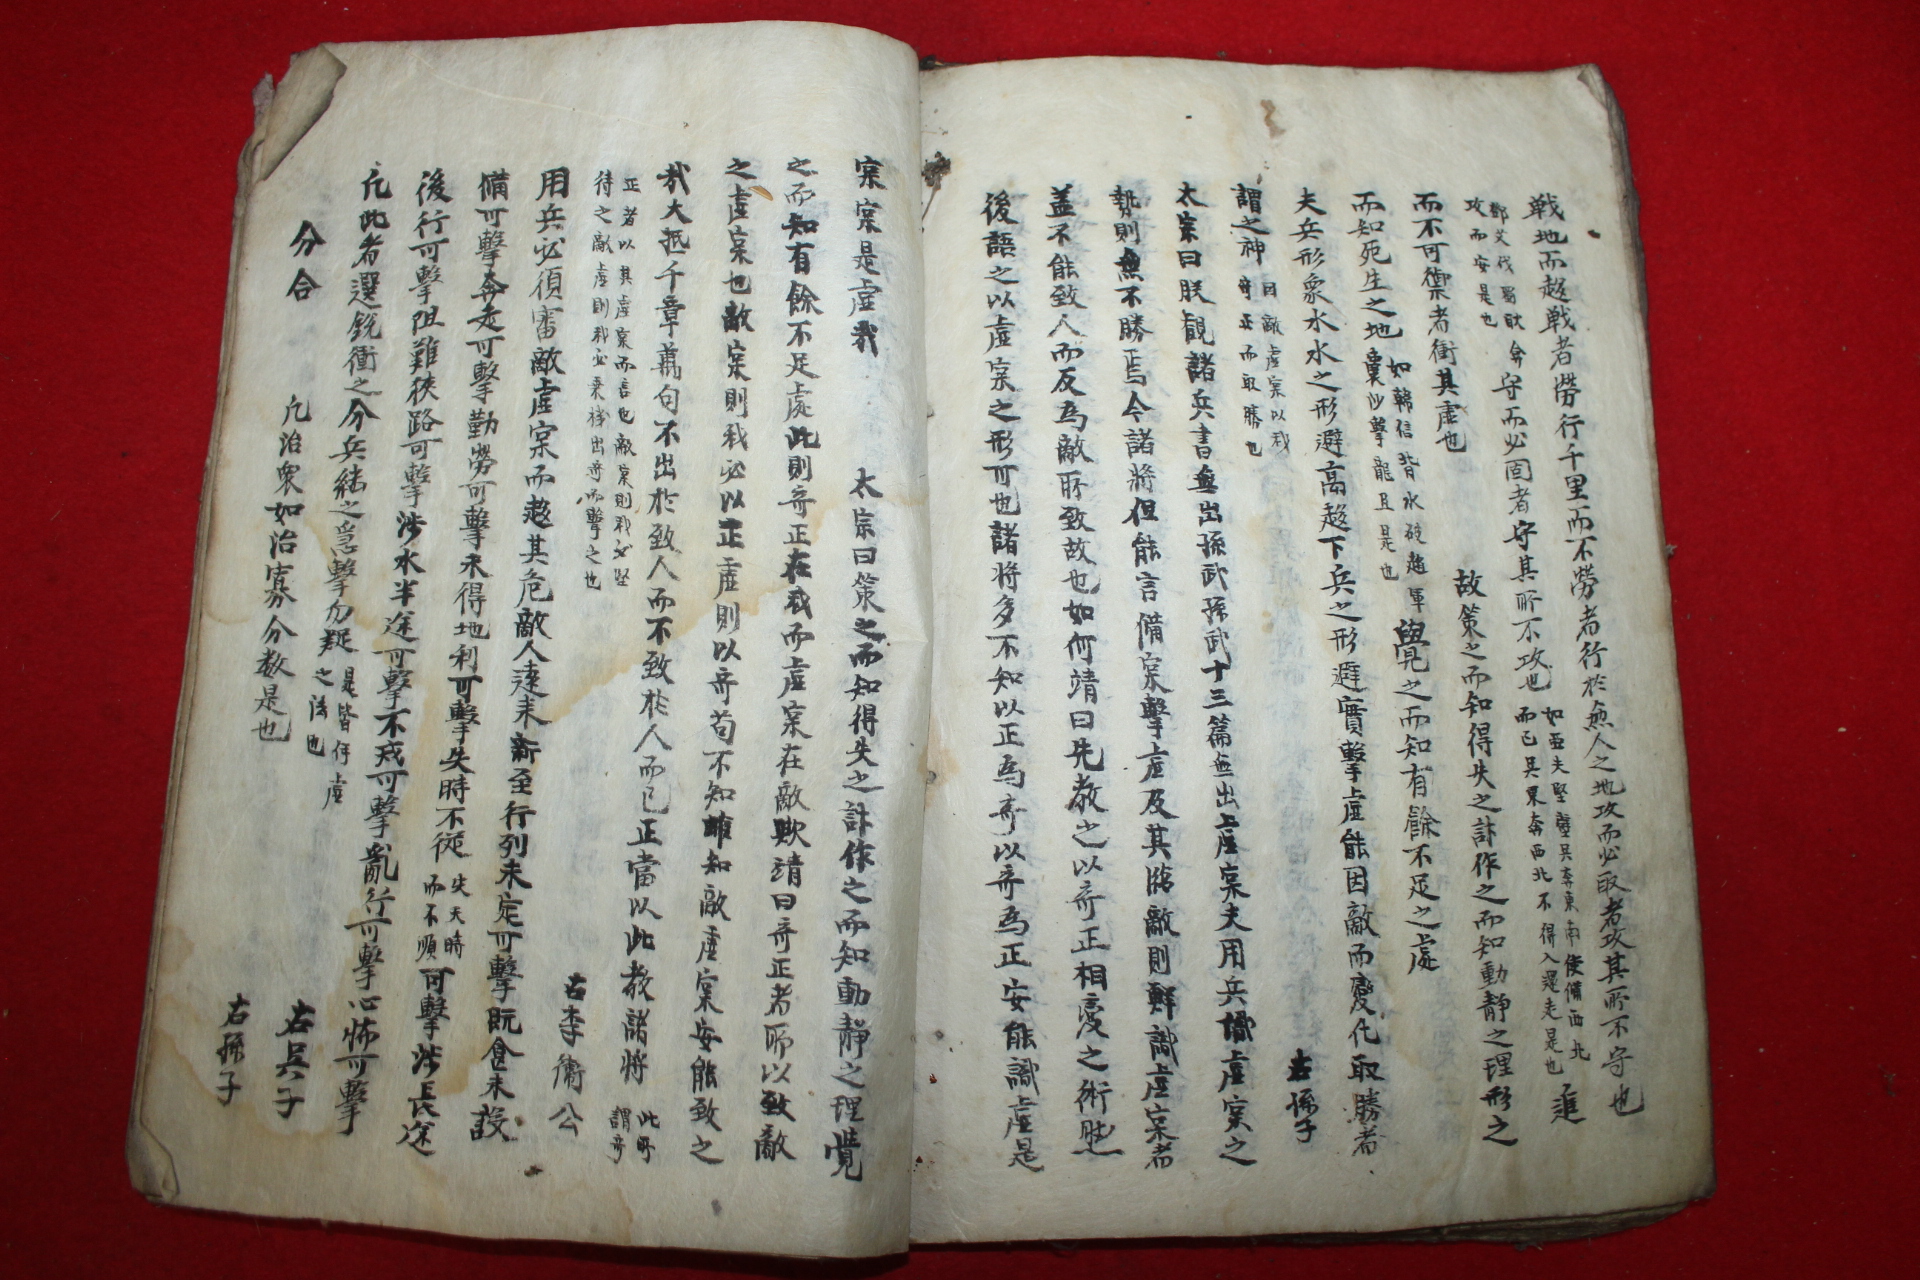 戰地而趍戰者勞行千里而不勞者行於無人之地攻而必取者攻其所不守也
鄧艾伐蜀
攻而安是也
守而必固者守其所不攻也
如亞夫堅壁吳奔東南使備西北
而已吳果奔西北不得入遁走是也
進
而不可禦者衝其虛也
故策之而知得失之計作之而知動靜之理形之
而知死生之地
如韓信背水破趙軍
囊沙擊龍且是也
角之而知有餘不足之處
夫兵形象水水之形避高趍下兵之形避實擊虛能因敵而變化取勝者
謂之神
因敵虛宲以我
奇正而取勝也
右孫子
太宗曰朕觀諸兵書無出孫武孫武十三篇無出虛宲夫用兵識虛宲之
勢則無不勝焉今諸將但能言備宲擊虛及其臨敵則鮮識虛宲者
盖不能致人而反爲敵所致故也如何靖曰先敎之以奇正相變之術然
後語之以虛宲之形可也諸將多不知以正爲奇以奇爲正安能識虛是
宲宲是虛哉
太宗曰策之而知得失之計作之而知動靜之理
之而知有餘不足處此則奇正在我而虛宲在敵歟靖曰奇正者所以致敵
之虛宲也敵宲則我必以正虛則以奇苟不知雖知敵虛宲安能致之
哉大抵千章萬句不出於致人而不致於人而已正當以此敎諸將
此所
謂奇
正者以其虛宲而言也敵宲則我必堅
待之敵虛則我必乘機出奇而擊之也
右李衛公
用兵必須審敵虛宲而趍其危敵人遠來新至行列未定可擊旣食未設
備可擊奔走可擊勤勞可擊未得地利可擊失時不從
失天時
而不順
可擊涉長途
後行可擊阻難狹路可擊涉水半途可擊不戎可擊亂行可擊心怖可擊
凡此者選銳衝之分兵継之急擊勿疑
是皆伺虛
之法也
右吳子
分合
凡治衆如治寡分數是也
右孫子